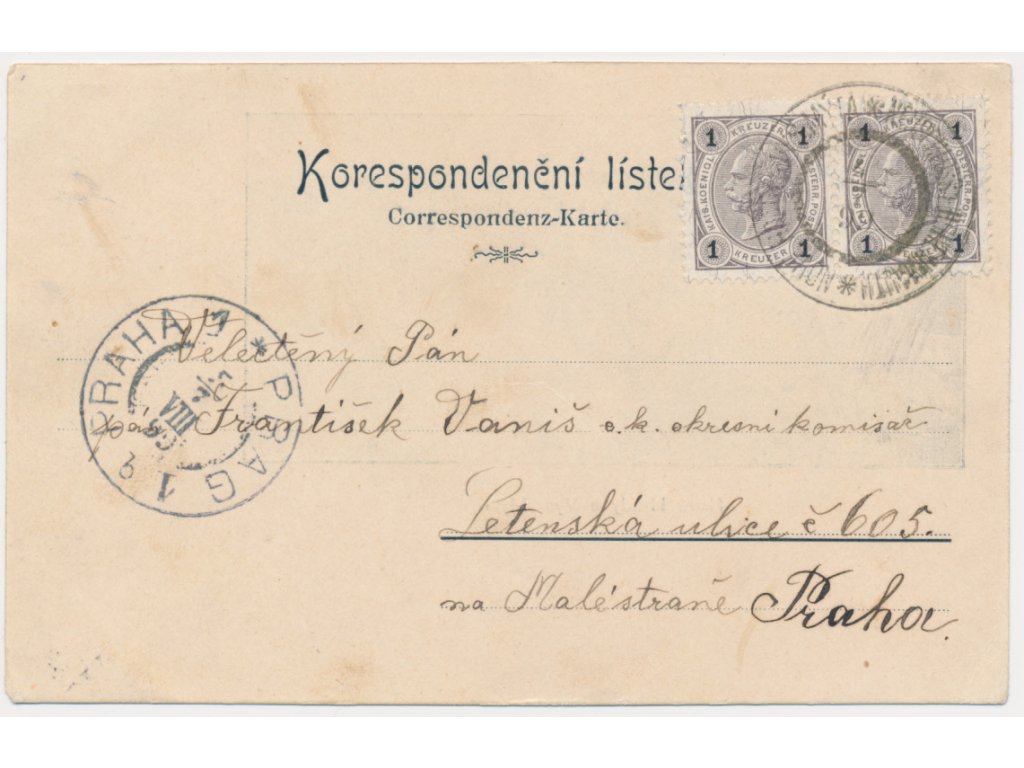 Korespondenční líste
Correspondenz-Karte.
1 KREUZER 1
KAIS. KOENIGL. OESTERR. POST
1 KREUZER 1
1 KREUZER 1
OESTERR. POST
1 1
PRAHA 1 * PRAG 1
VIII
Velectěný Pán
Pán František Vaniš c. k. okresní komisař
Letenská ulice č 605.
na Malé straně Praha.